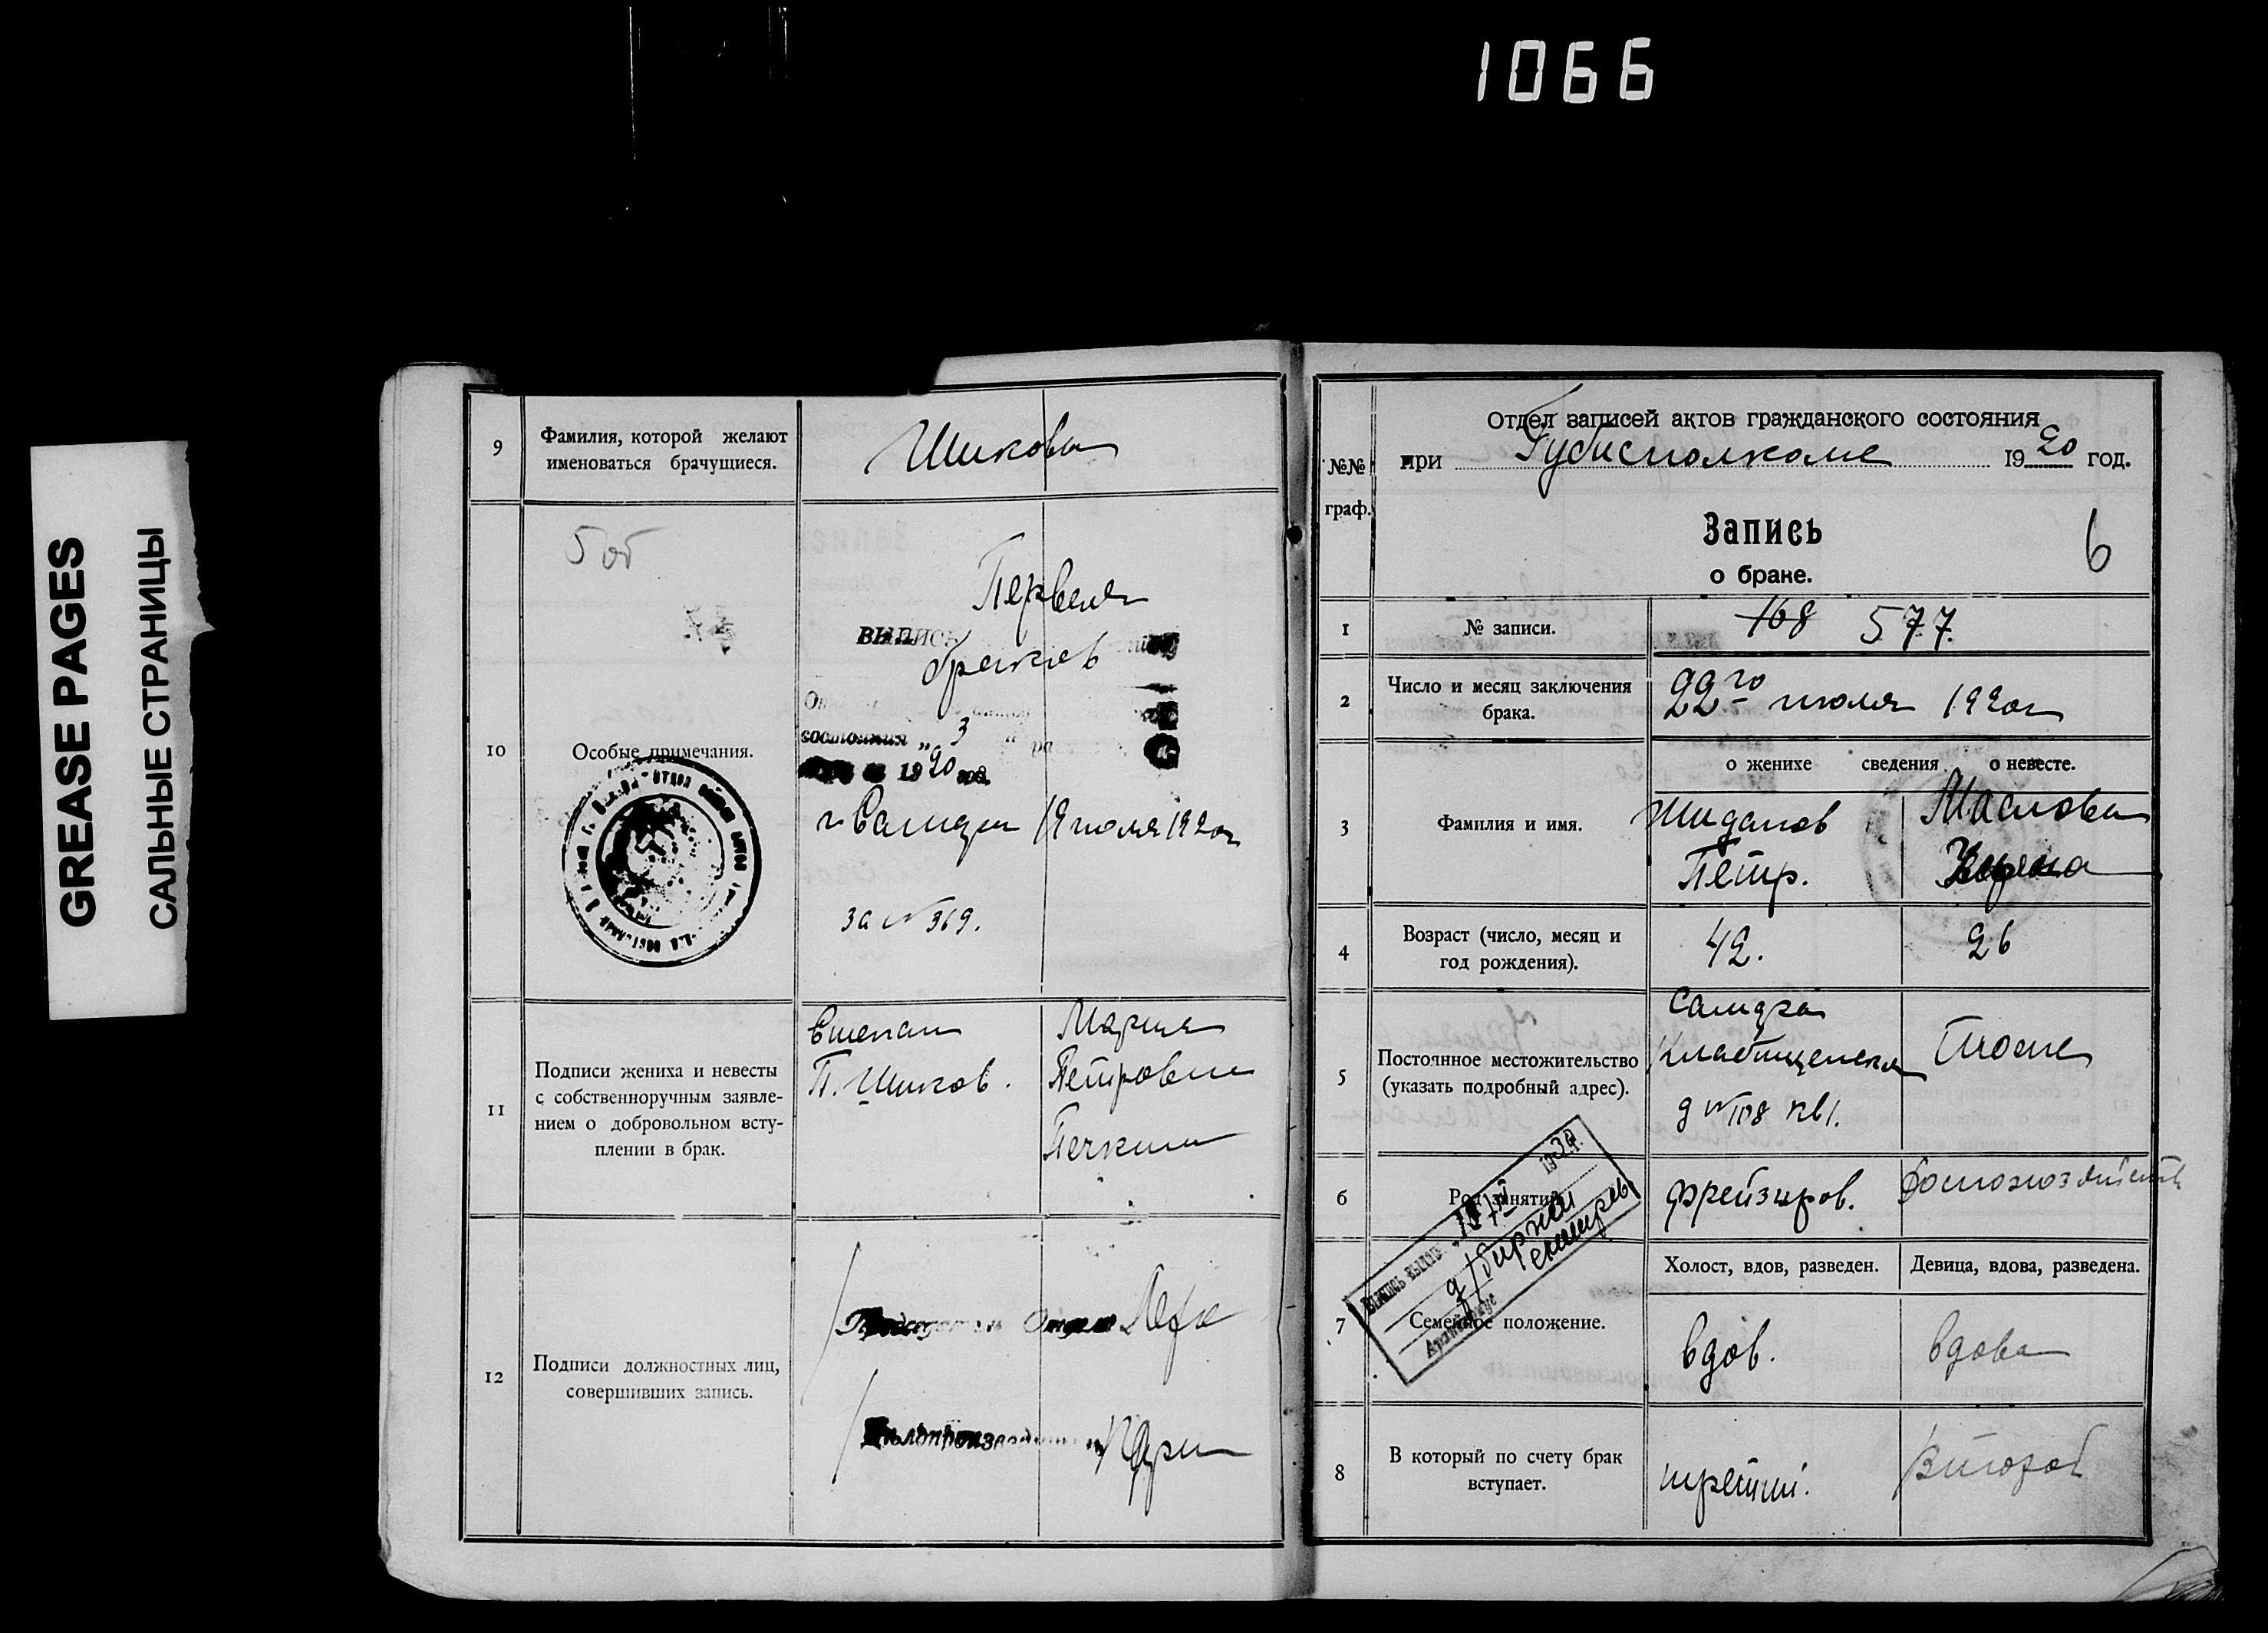 1066
GREASE PAGES
САЛЬНЫЕ СТРАНИЦЫ
9
Фамилия, которой желают
именоваться брачущиеся.
Шикова
10
5 об
Особые примечания.
выпись
браков
состояния „ 3 "
1920 год.
г Самара 19 июля 1920 г
за № 369.
11
Подписи жениха и невесты
с собственноручным заявле-
нием о добровольном всту-
плении в брак.
Степан
П. Шиков.
Мария
Петровна
Печкина
12
Подписи должностных лиц,
совершивших запись.
Отдела
№№
граф.
Отдел записей актов гражданского состояния
при Губисполкоме 1920 год.
Запись
о браке.
6
1
№ записи.
168 577.
2
Число и месяц заключения
брака.
22го июля 1920 г
о женихе сведения о невесте.
3
Фамилия и имя.
Петр.
Маслова
4
Возраст (число, месяц и
год рождения).
42.
26
5
Постоянное местожительство
(указать подробный адрес).
Самара
д № 108 кв 1.
Тоже
6
Род занятий
Фрейзеров.
Домохозяйств
Выпись выдана
7
Семейное положение.
Холост, вдов, разведен.
Девица, вдова, разведена.
вдов.
вдова
8
В который по счету брак
вступает.
третий.
второй